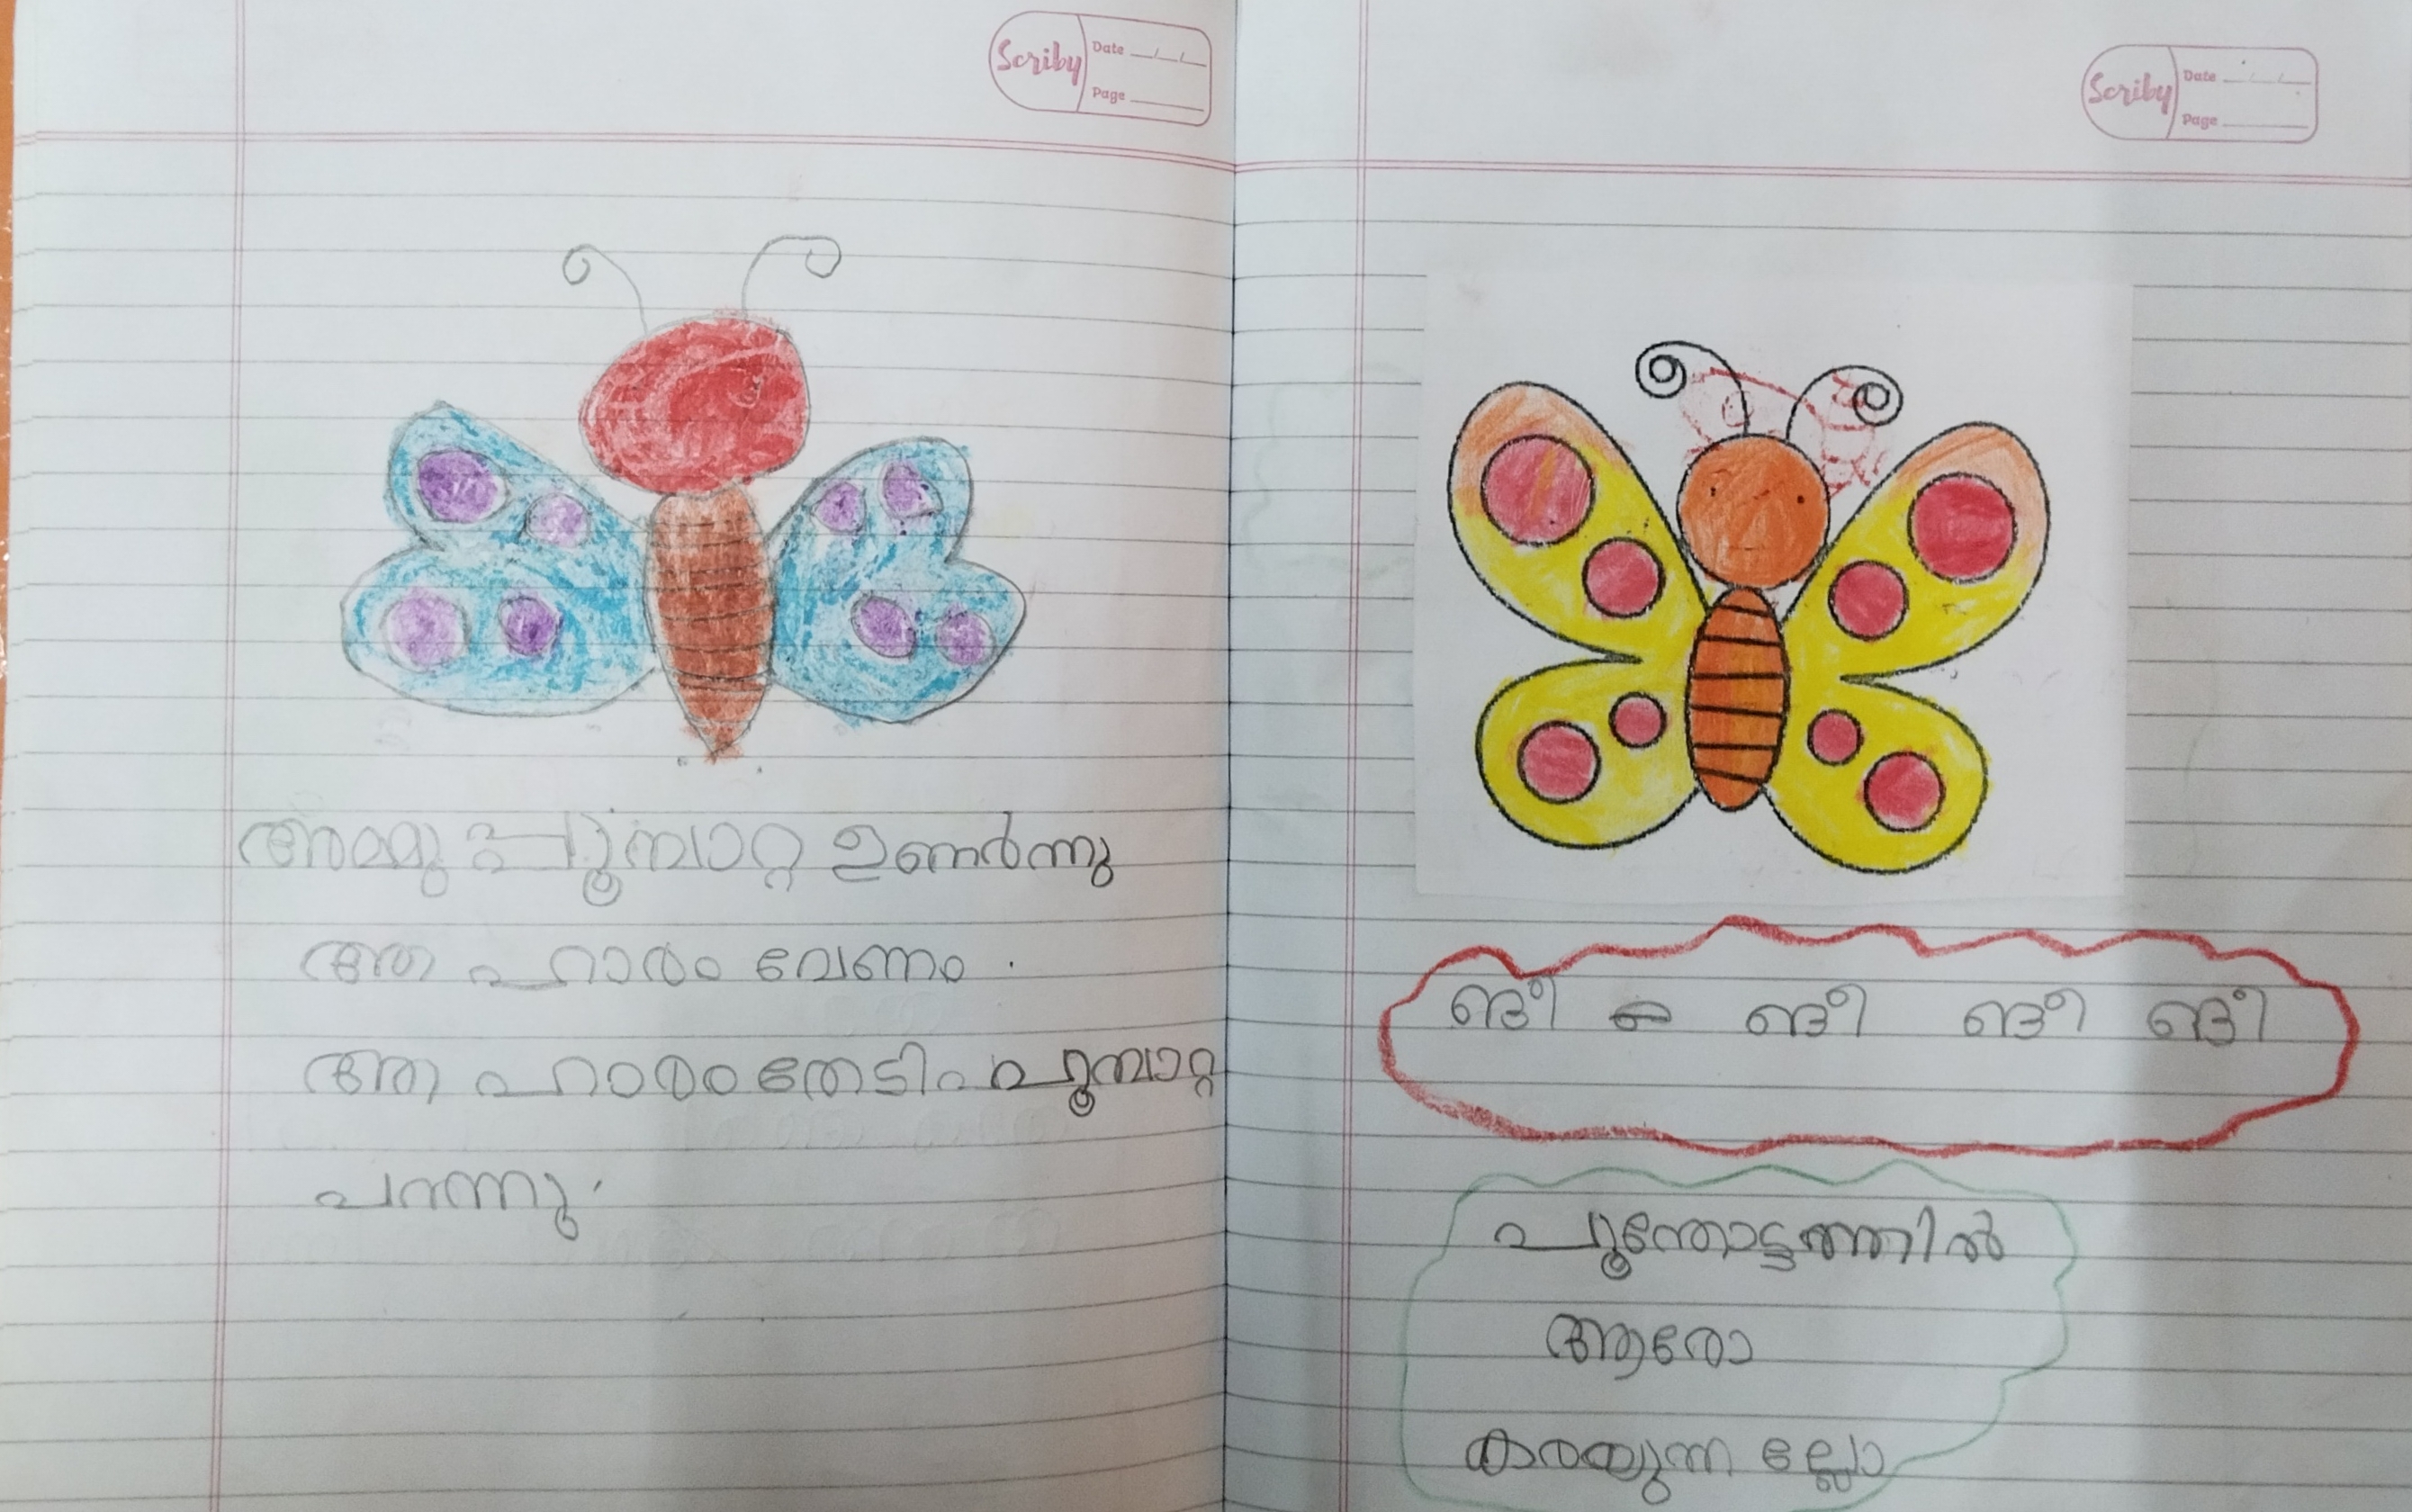 Scriby Date
Page
അമ്മു പൂമ്പാറ്റ ഉണർന്നു
ആ ഹാരം വേണം .
ആ ഹാരം തേടി പൂമ്പാറ്റ
പറന്നു .
Scriby Date
Page
പൂന്തോട്ടത്തിൽ
ആരോ
കരയുന്ന ല്ലോ